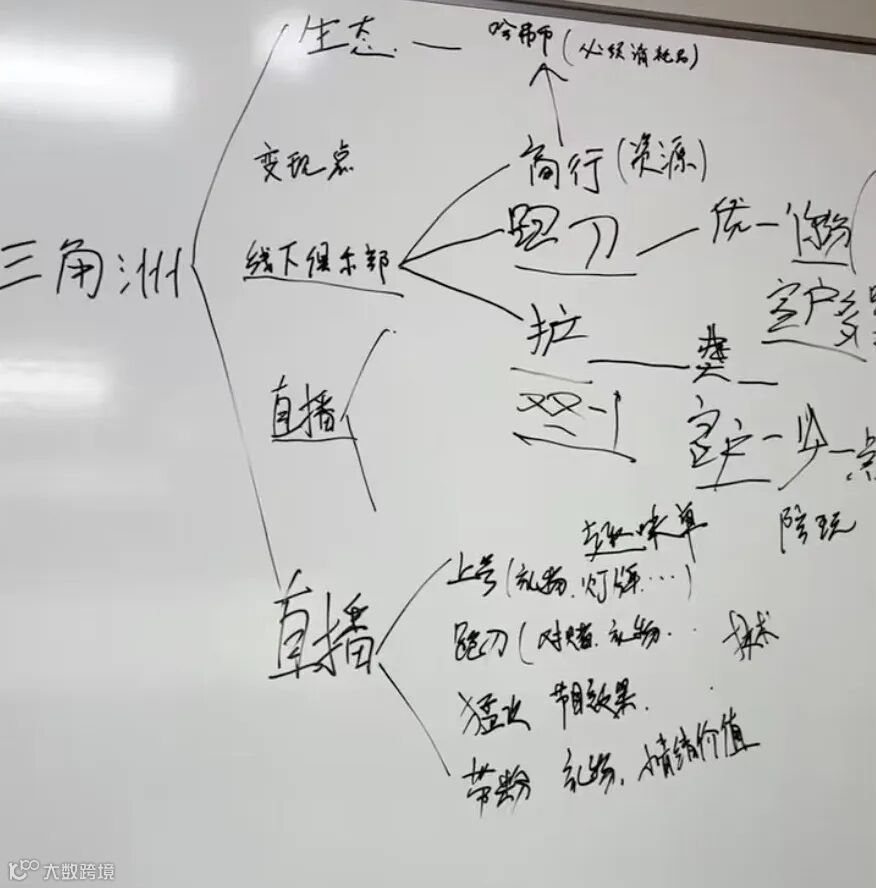 生态 — 哈弗币(必须消耗品)
变现点
商行(资源)
三角洲
线下俱乐部
跑刀 — 优 —
客户多
护 — 类 —
直播
客户 — 少 — 点
趣味单 陪玩
直播
上号(礼物、灯牌…)
跑刀(对赌、礼物.. 技术
猛攻 节目效果.
带粉 礼物、情绪价值
大数跨境